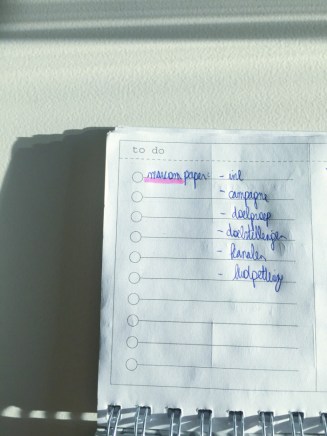 to do
marcom paper: - inl
- campagne
- doelgroep
- doelstellingen
- kanalen